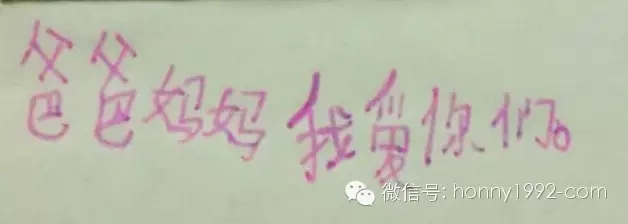 爸爸妈妈我爱你们。
微信号: honny1992-com